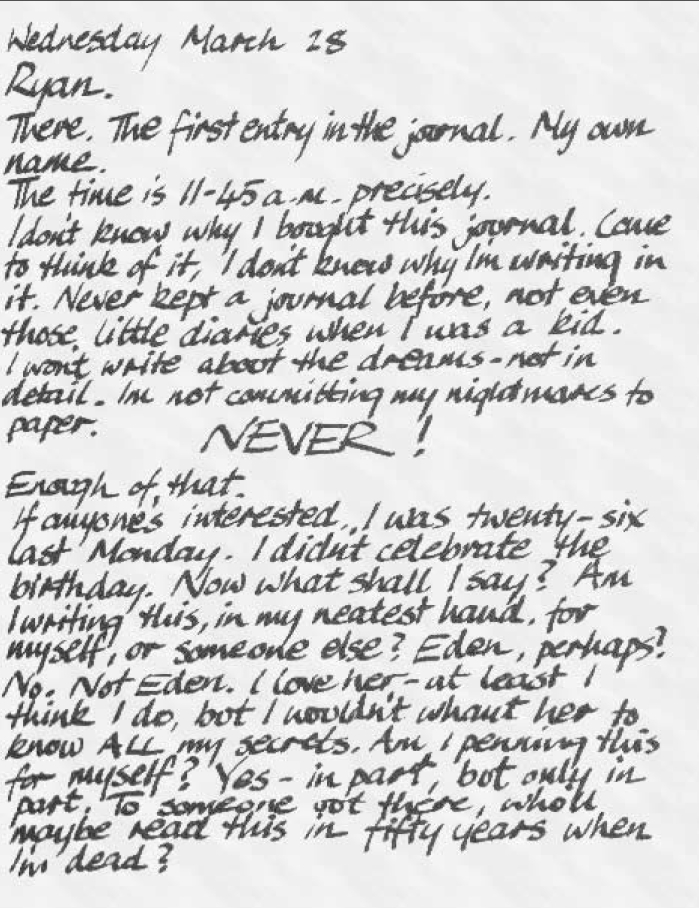 Wednesday March 28
Ryan.
There. The first entry in the journal. My own
name.
The time is 11-45 a.m. precisely.
I don't know why I bought this journal. Come
to think of it, I don't know why I'm writing in
it. Never kept a journal before, not even
those little diaries when I was a kid.
I won't write about the dreams - not in
detail. I'm not committing my nightmares to
paper. NEVER!
Enough of that.
If anyone's interested, I was twenty-six
last Monday. I didn't celebrate the
birthday. Now what shall I say? Am
I writing this, in my neatest hand, for
myself, or someone else? Eden, perhaps?
No. Not Eden. I love her - at least I
think I do, but I wouldn't whant her to
know ALL my secrets. Am I penning this
for myself? Yes - in part, but only in
part. To someone out there, who'll
maybe read this in fifty years when
I'm dead?